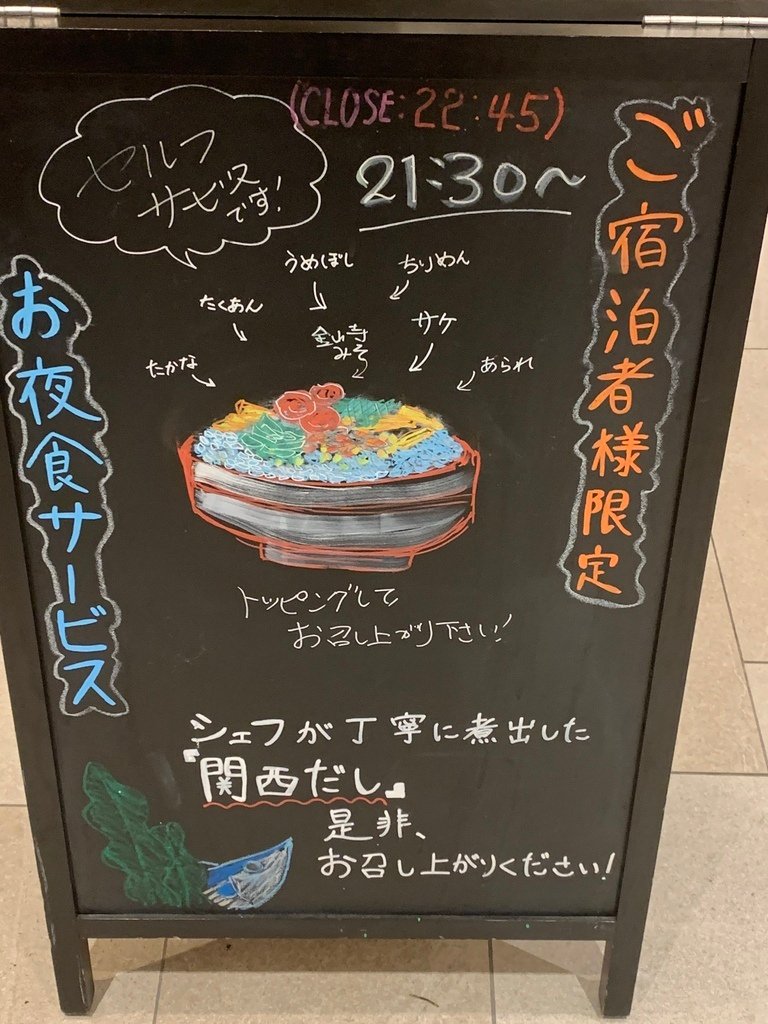 ご宿泊者様限定
(CLOSE:22:45)
21:30～
セルフ
サービス
です!
お夜食サービス
うめぼし
ちりめん
たくあん
金山寺
みそ
サケ
たかな
あられ
トッピングして
お召し上がり下さい!
シェフが丁寧に煮出した
『関西だし』
是非、
お召し上がりください!